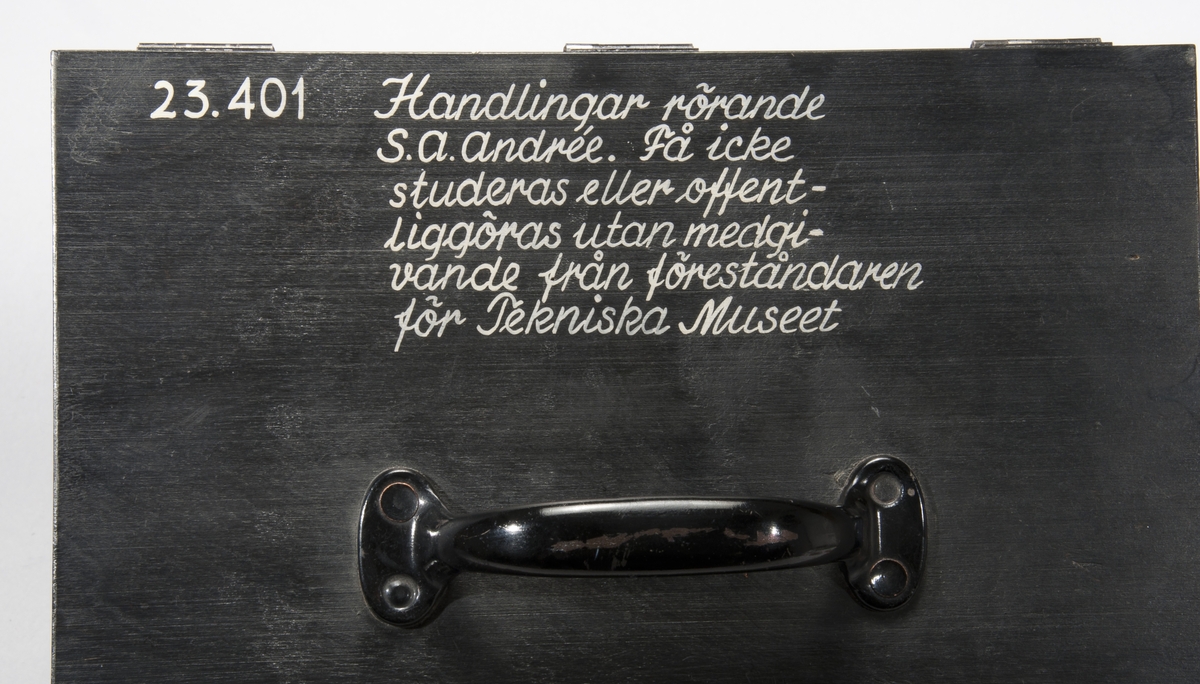 23.401 Handlingar rörande
S.A. Andrée. Få icke
studeras eller offent-
liggöras utan medgi-
vande från föreståndaren
för Tekniska Museet